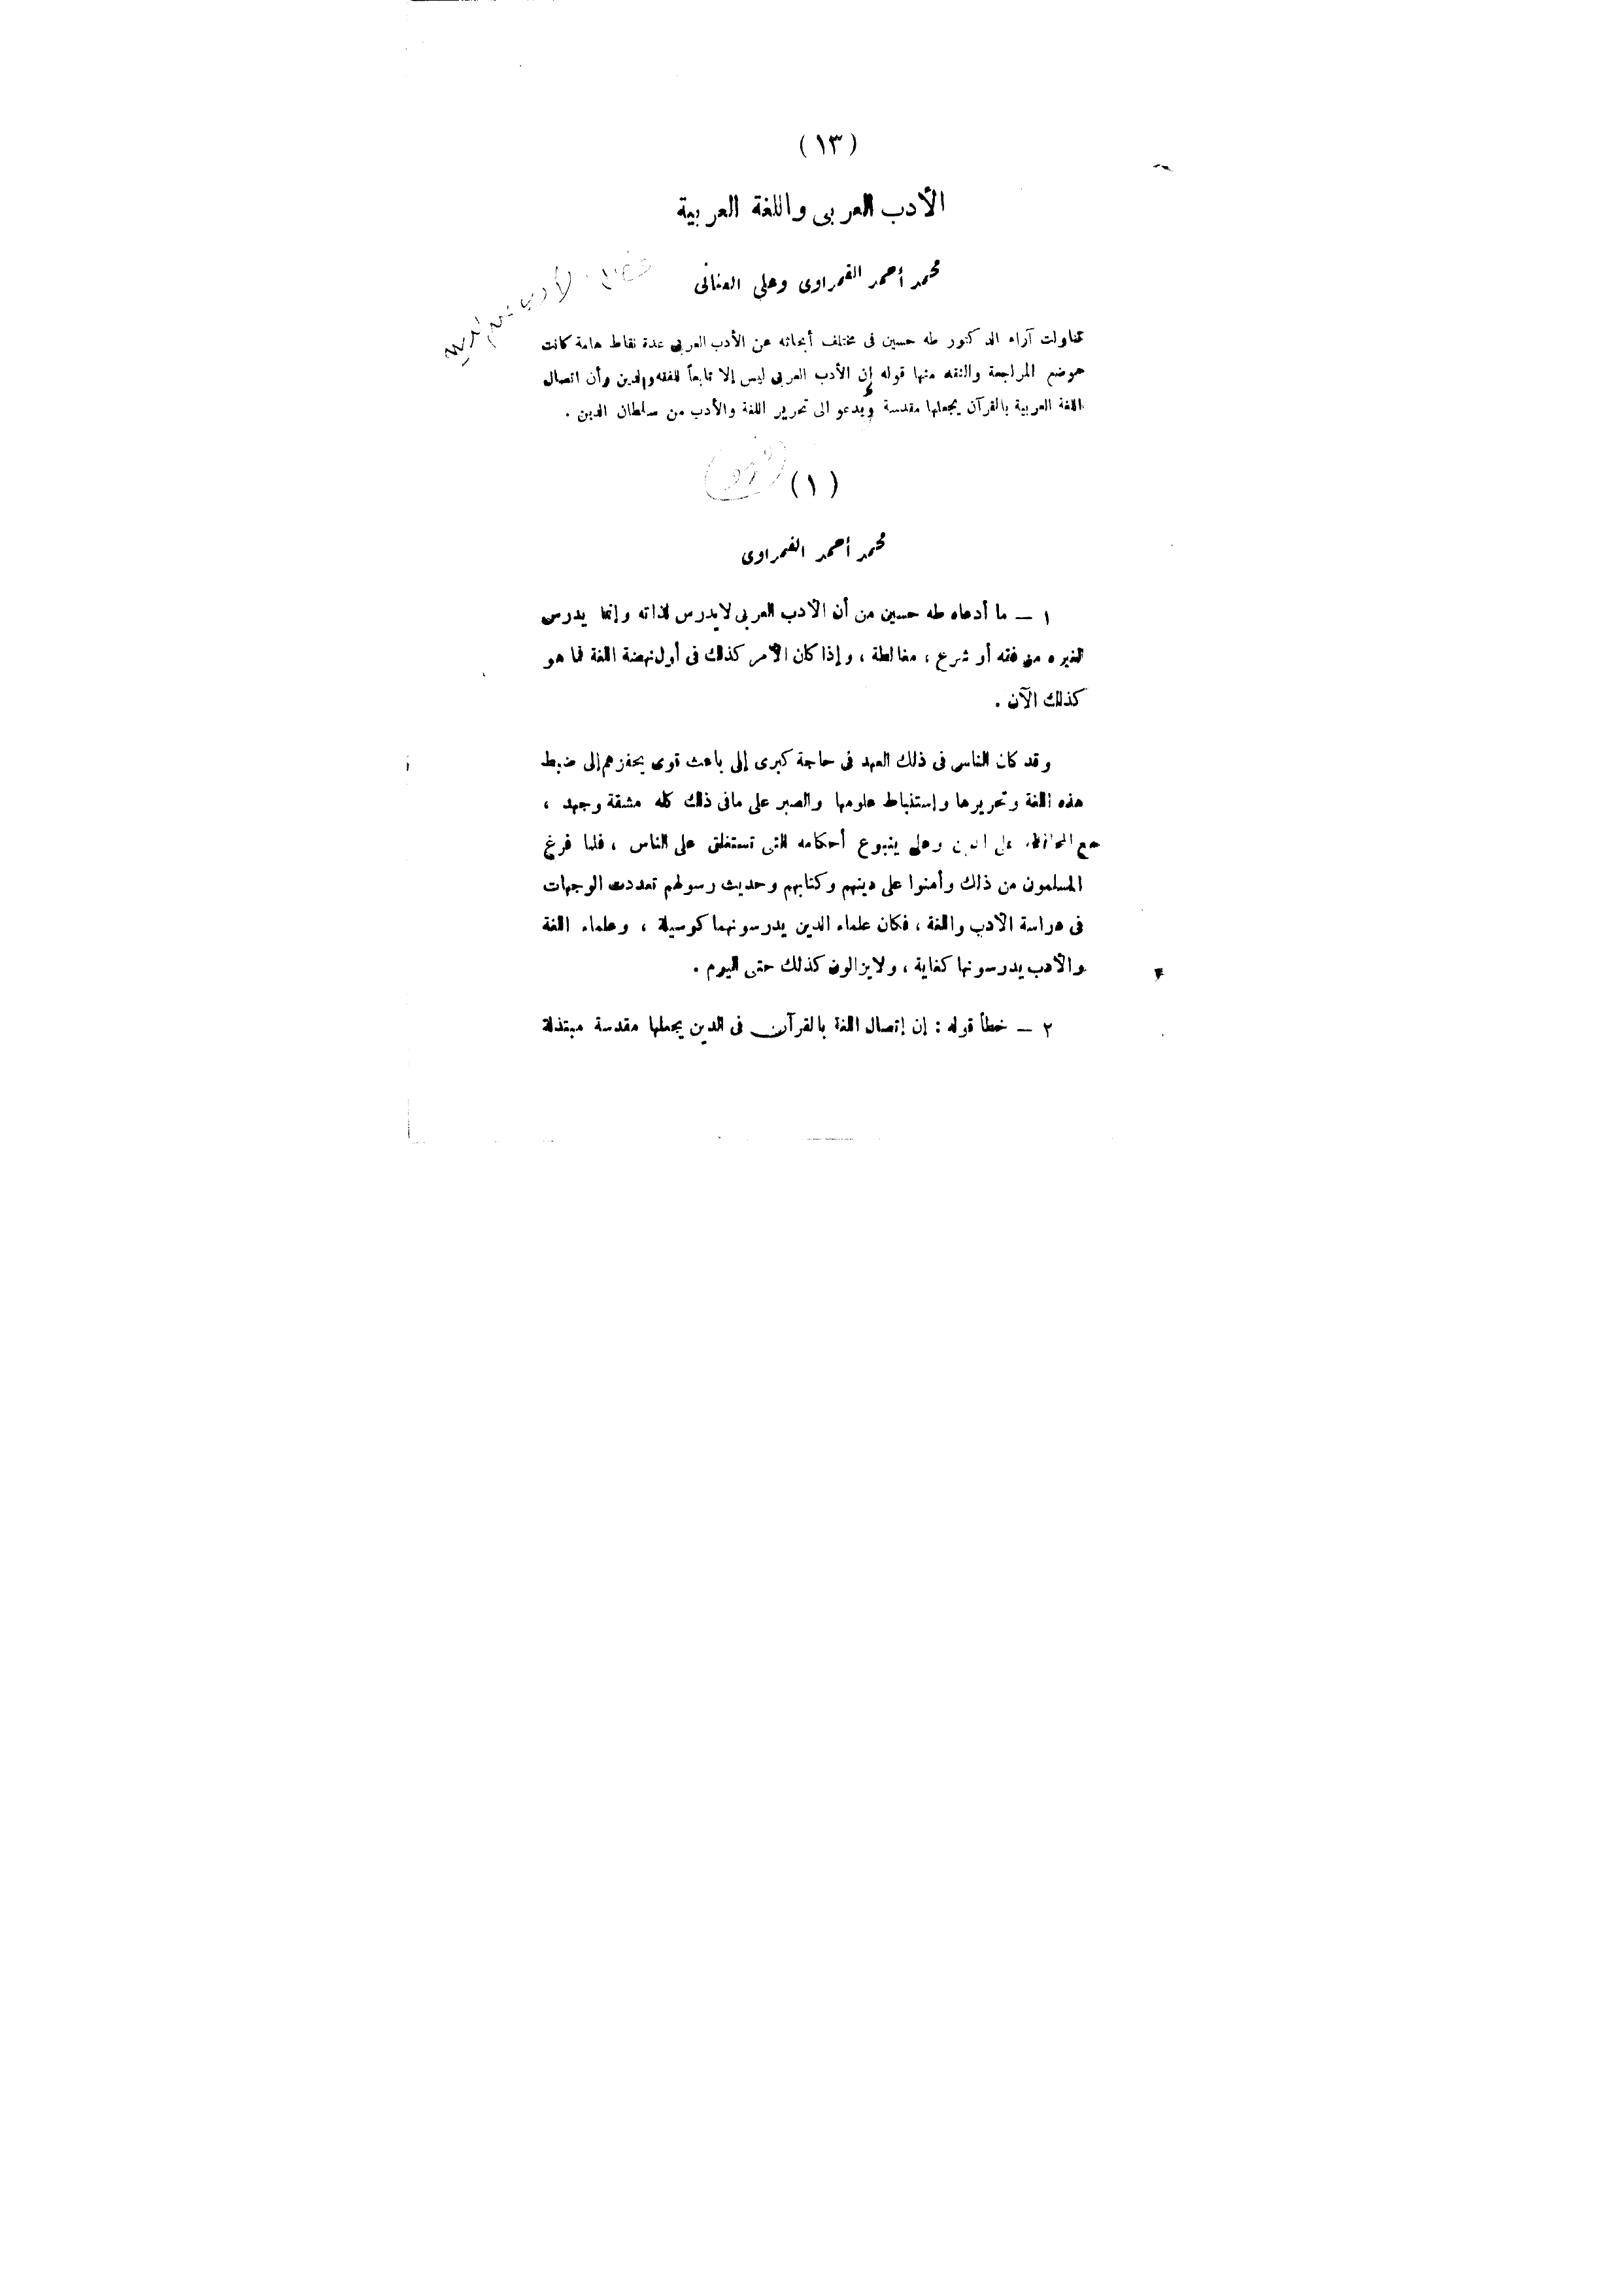 (١٣)
الأدب العربى واللغة العربية
محمد أحمد الغمراوى وعلى العنانى
تناولت آراء الدكتور طه حسين فى مختلف أبحاثه عن الأدب العربى عدة نقاط هامة كانت
موضع المراجعة والنقد منها قوله إن الأدب العربى ليس إلا تابعاً للفقه والدين وأن اتصال
اللغة العربية بالقرآن يجعلها مقدسة ويدعو الى تحرير اللغة والأدب من سلطان الدين .
(١)
محمد أحمد الغمراوى
١ — ما أدعاه طه حسين من أن الأدب العربى لايدرس لذاته وإنما يدرس
لغيره من فقه أو شرع ، مغالطة ، وإذا كان الأمر كذلك فى أول نهضة اللغة فما هو
كذلك الآن .
وقد كان الناس فى ذلك العهد فى حاجة كبرى إلى باعث قوى يحفزهم إلى ضبط
هذه اللغة وتحريرها وإستنباط علومها والصبر على مافى ذلك كله مشقة وجهد ،
مع المحافظة على الدين وعلى ينبوع أحكامه التى تستغلق على الناس ، فلما فرغ
المسلمون من ذلك وأمنوا على دينهم وكتابهم وحديث رسولهم تعددت الوجهات
فى دراسة الأدب واللغة ، فكان علماء الدين يدرسونهما كوسيلة ، وعلماء اللغة
والأدب يدرسونها كغاية ، ولايزالون كذلك حتى اليوم .
٢ — خطأ قوله : إن إتصال اللغة بالقرآن فى الدين يجعلها مقدسة مبتذلة